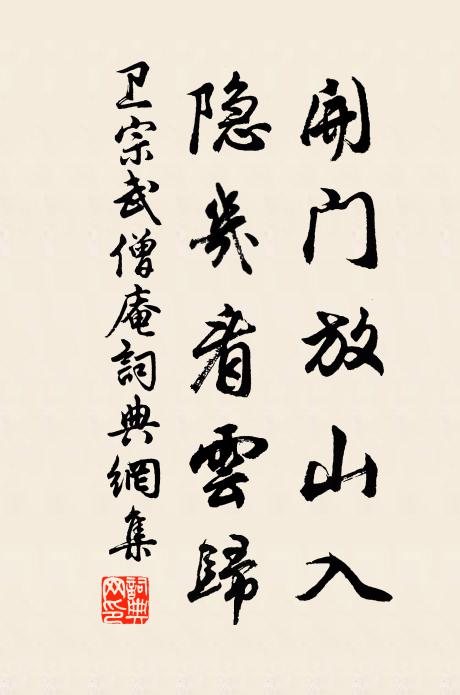 開门放山入
隐几看雲歸
卫宗武僧庵詞典網集
詞典网印